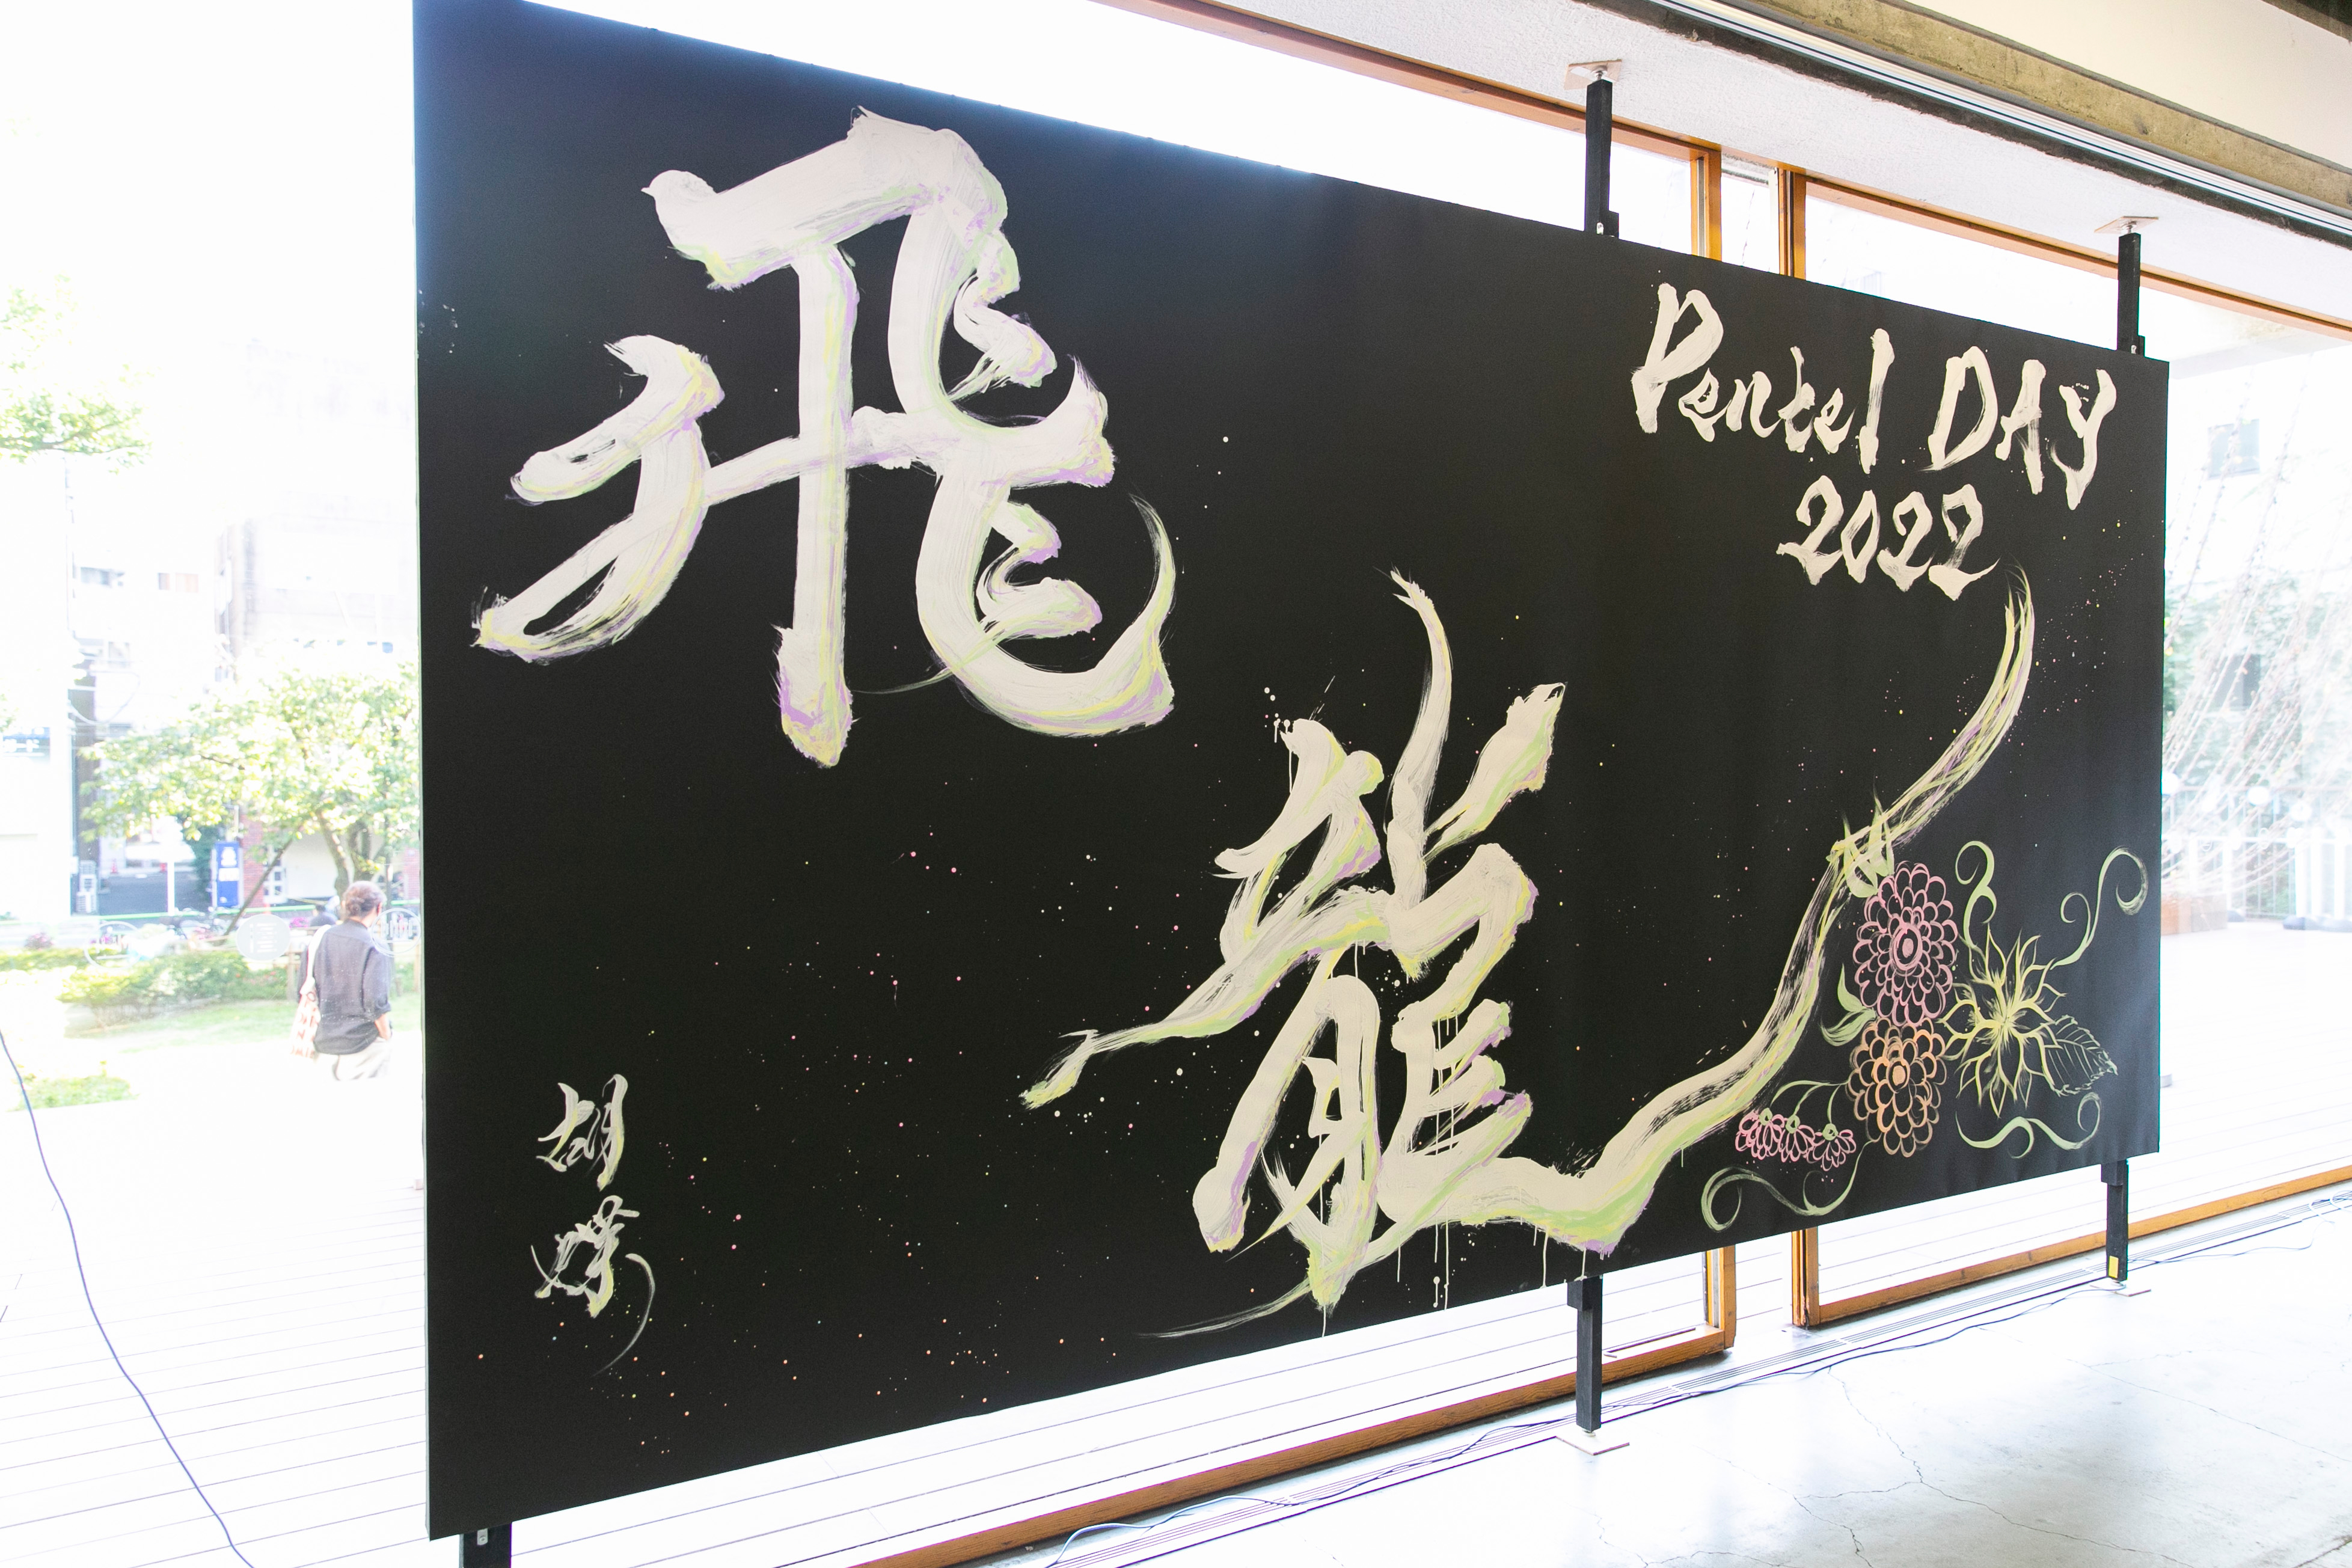 飛
龍
Pentel DAY
2022
胡
蝶